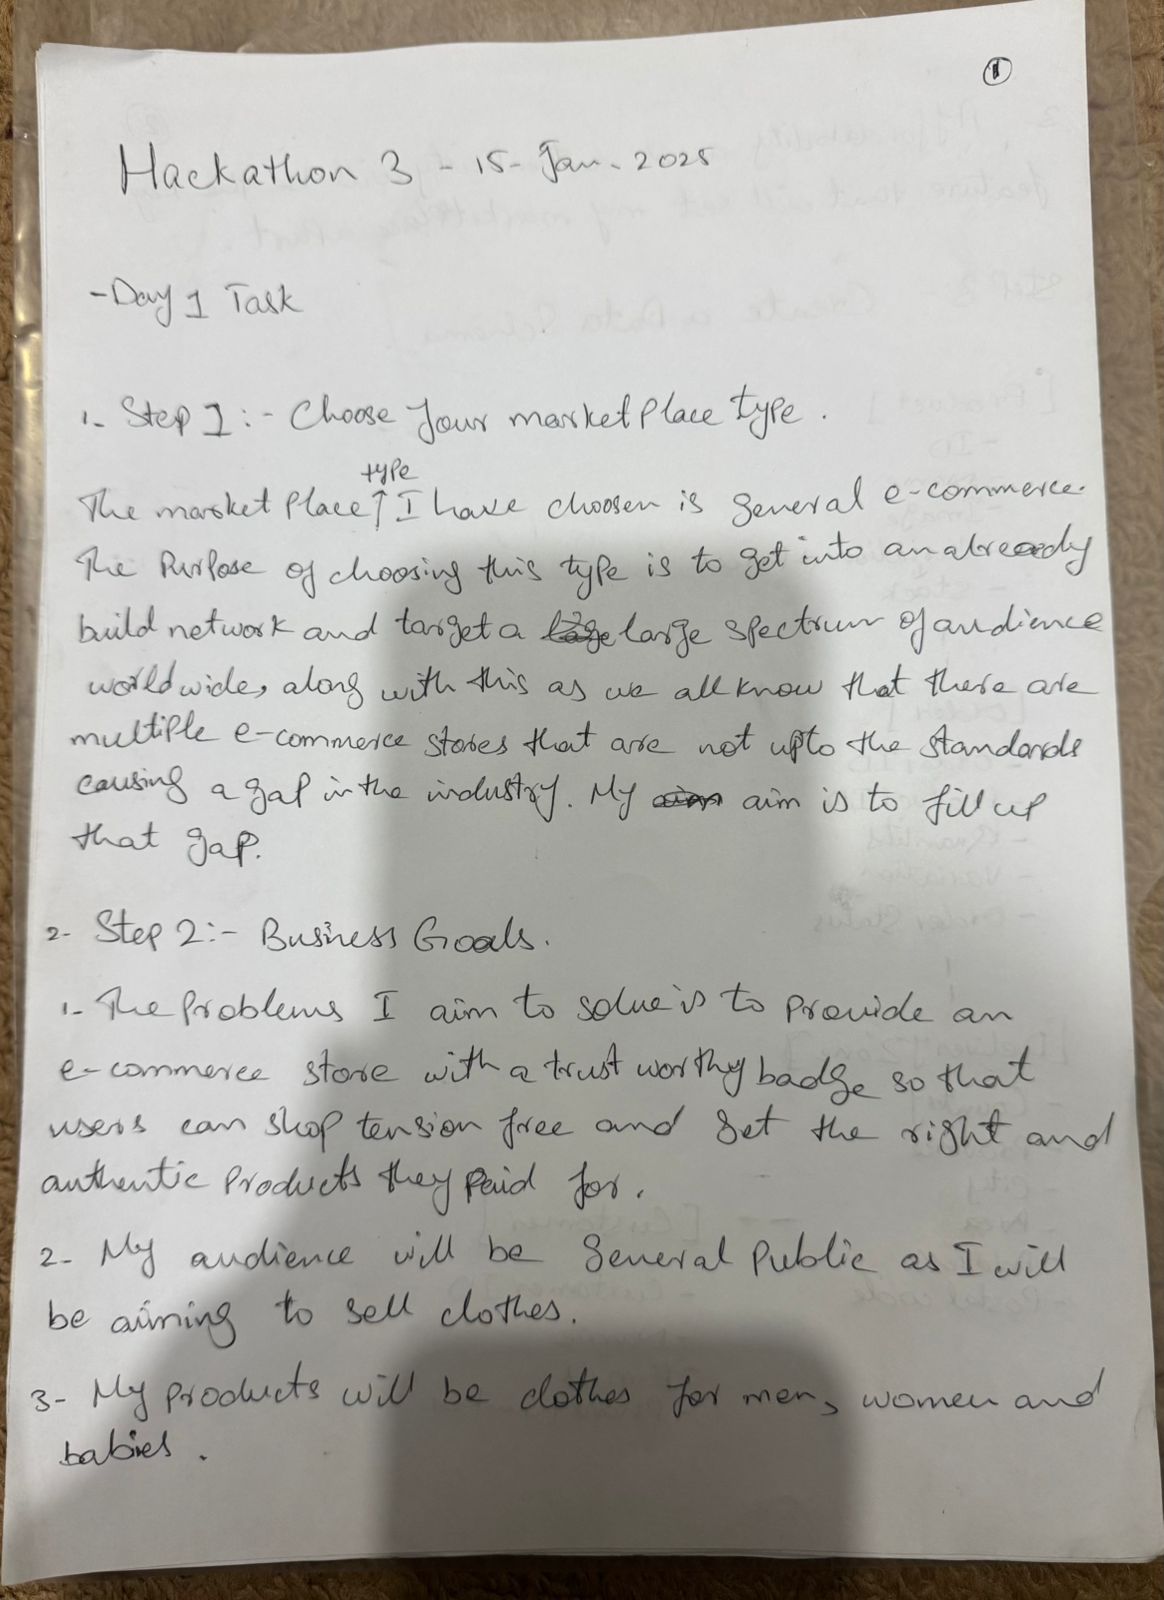 1
Hackathon 3 - 15- Jan. 2025
- Day 1 Task
1- Step 1:- Choose Your market Place type.
type
The market Place ↑ I have choosen is general e-commerce.
The Purpose of choosing this type is to get into an already
build network and target a large spectrum of audience
worldwide, along with this as we all know that there are
multiple e-commerce stores that are not upto the standards
causing a gap in the industry. My aim is to fill up
that gap.
2- Step 2:- Business Goals.
1- The Problems I aim to solve is to provide an
e-commerce store with a trust worthy badge so that
users can shop tension free and get the right and
authentic Products they paid for.
2- My audience will be general Public as I will
be aiming to sell clothes.
3- My products will be clothes for men, women and
babies.